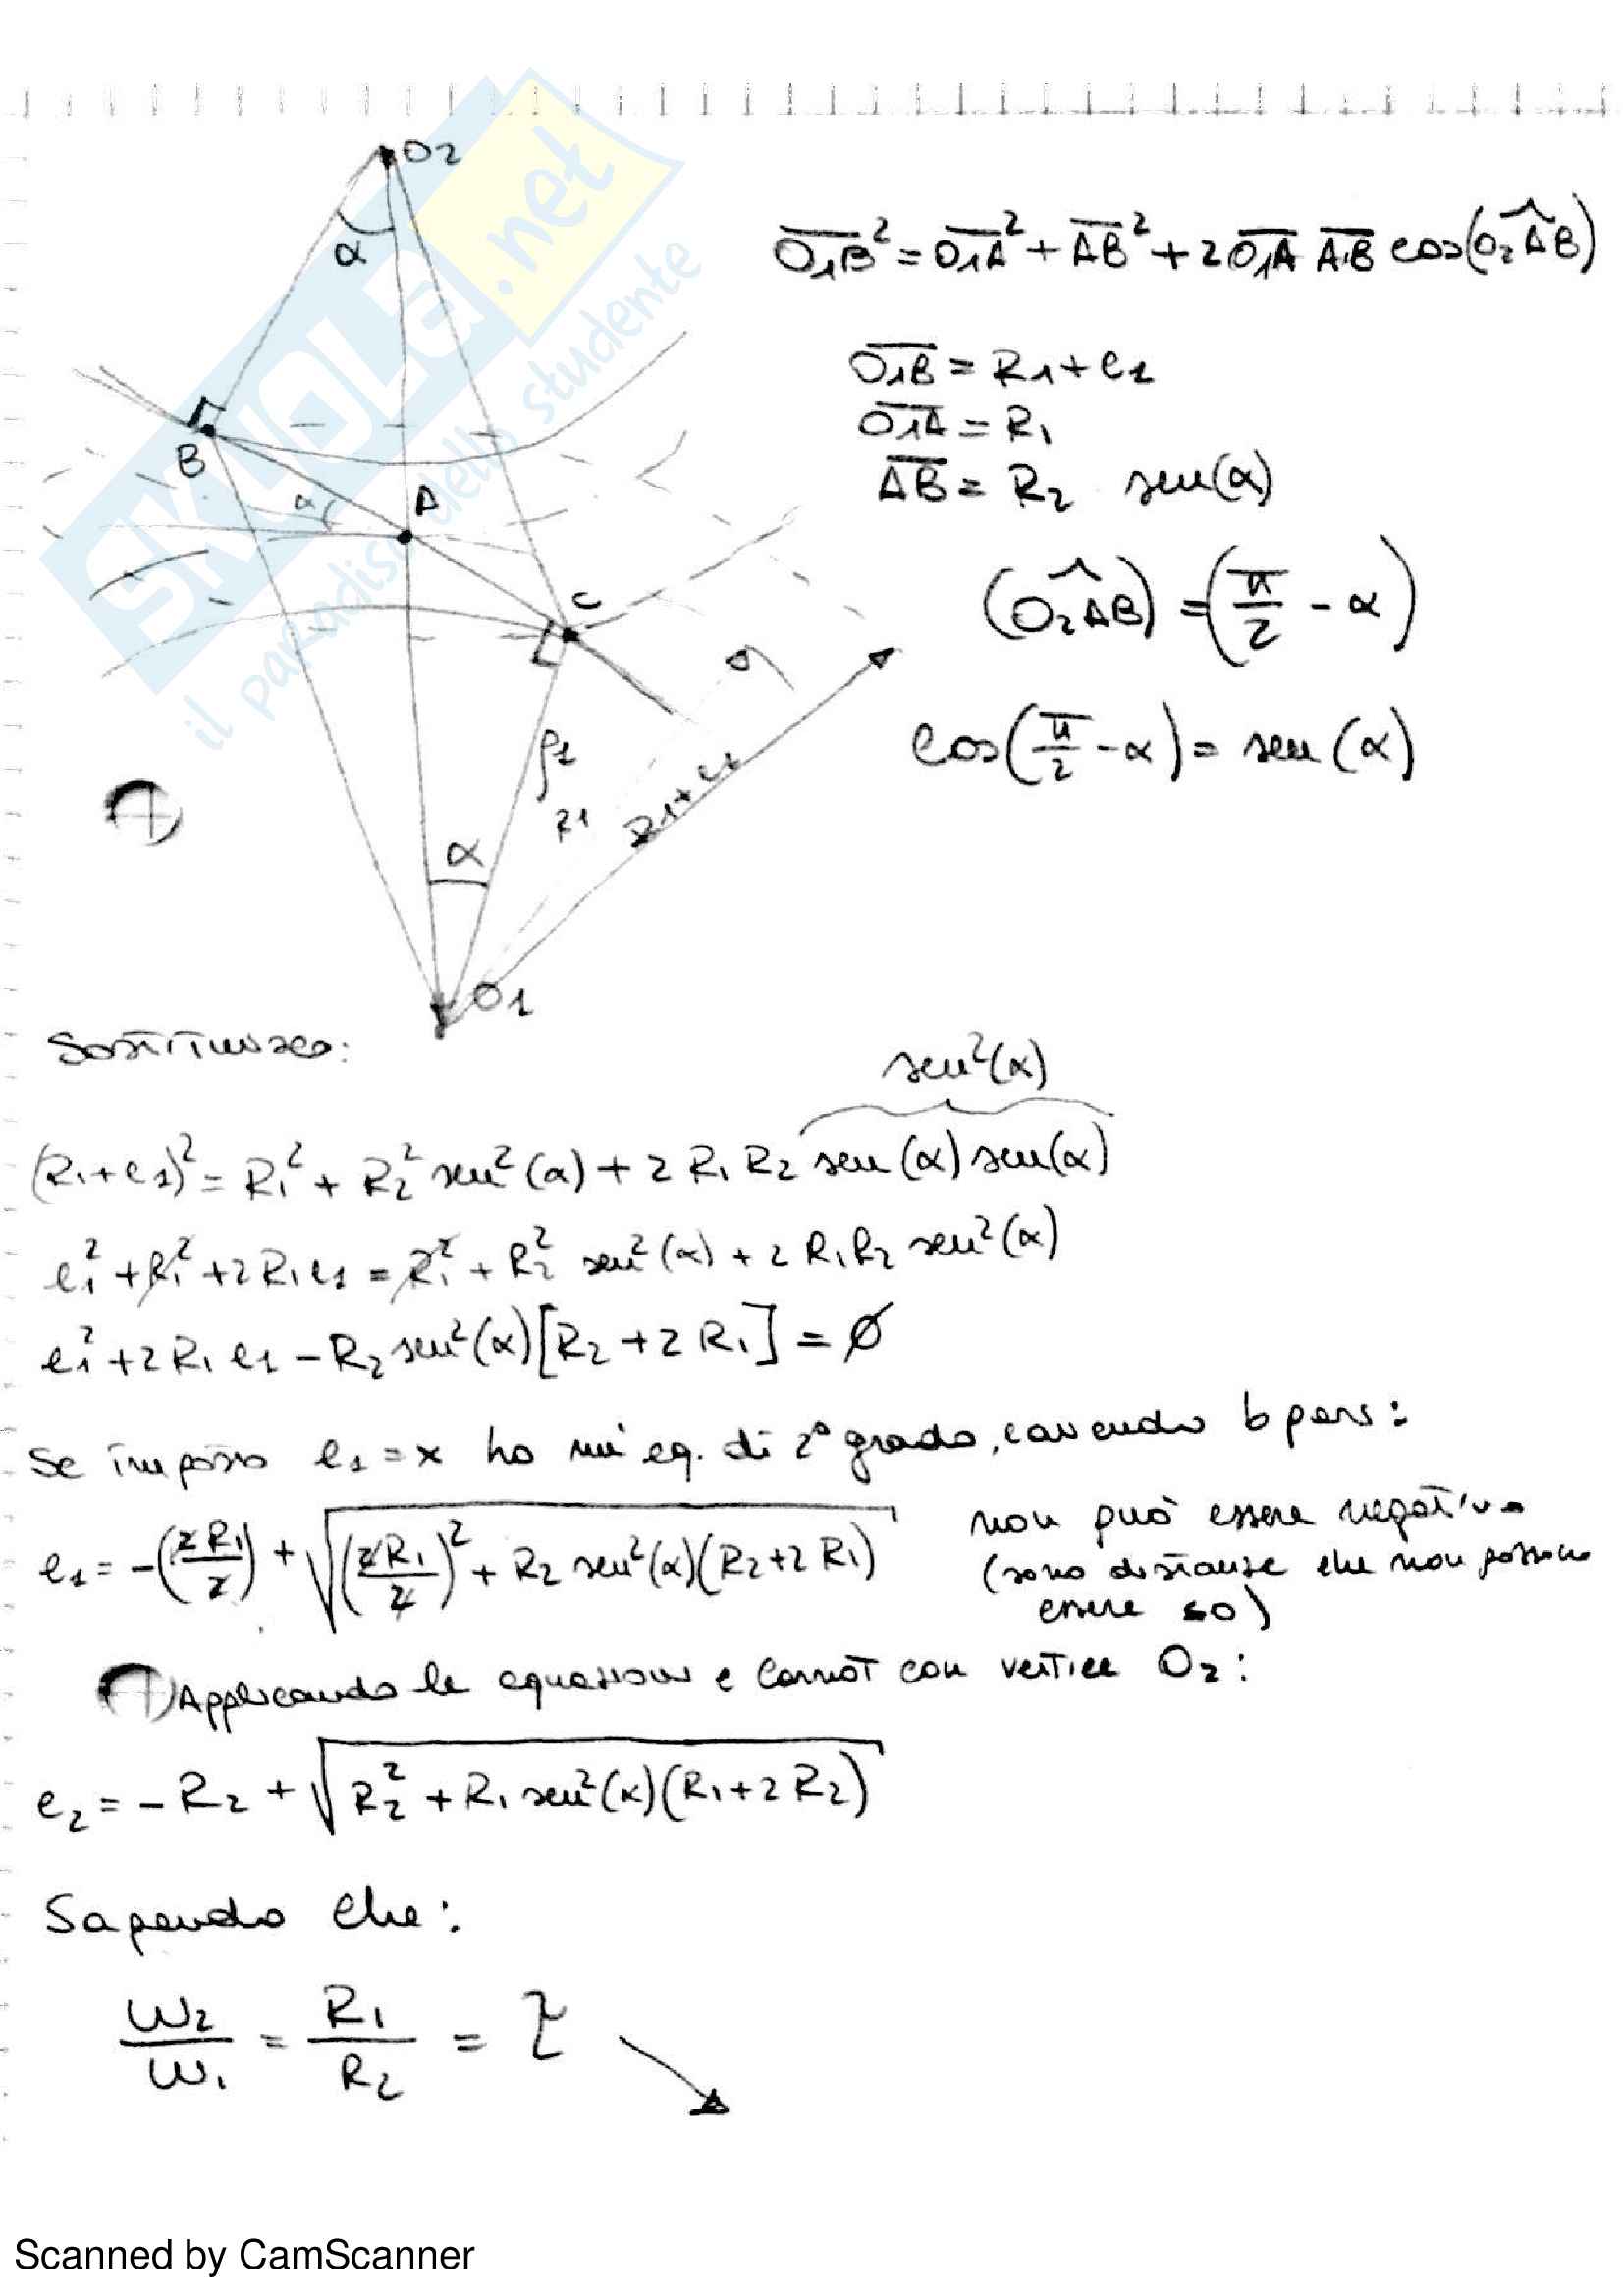 O2
α
B
α
A
C
ρ1
R1
R1+e1
α
O1
SKUOLA.net
il paradiso dello studente
O1B² = O1A² + AB² + 2 O1A AB cos(O2ÂB)
O1B = R1 + e1
O1A = R1
AB = R2 sen(α)
(O2ÂB) = (π/2 - α)
cos(π/2 - α) = sen(α)
Sostituisco:
sen²(α)
(R1+e1)² = R1² + R2² sen²(α) + 2 R1 R2 sen(α) sen(α)
e1² + R1² + 2 R1 e1 = R1² + R2² sen²(α) + 2 R1 R2 sen²(α)
e1² + 2 R1 e1 - R2 sen²(α) [R2 + 2 R1] = Ø
Se impósto e1 = x ho un'eq. di 2° grado, avendo b pari:
e1 = -(2R1/2) + √((2R1/2)² + R2 sen²(α)(R2+2R1))
non può essere negativa
(sono distanze che non possono
essere ≤0)
Applicando le equazioni e Carnot con vertice O2:
e2 = - R2 + √(R2² + R1 sen²(α)(R1+2R2))
Sapendo che:
ω2/ω1 = R1/R2 = τ
Scanned by CamScanner